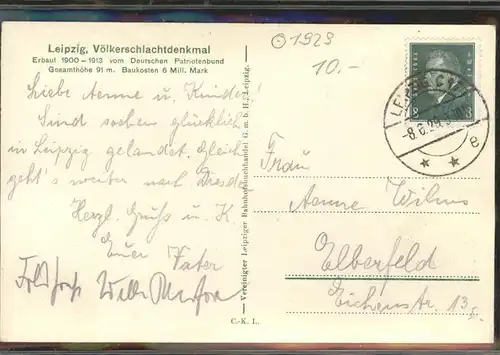 Leipzig, Völkerschlachtdenkmal
Erbaut 1900–1913 vom Deutschen Patriotenbund
Gesamthöhe 91 m. Baukosten 6 Mill. Mark
1929
10.-
Liebe Aenne u. Kinder!
Sind soeben glücklich
in Leipzig gelandet. Gleich
geht's weiter nach Dresden
Herzl. Gruß u. K.
Euer Vater
Willi
Frau
Aenne Wilms
Elberfeld
Eichenstr. 13
Vereinigter Leipziger Bahnhofsbuchhandel G. m. b. H., Leipzig.
C.-K. L.
8
8
LEIPZIG C
-8.6.29
e